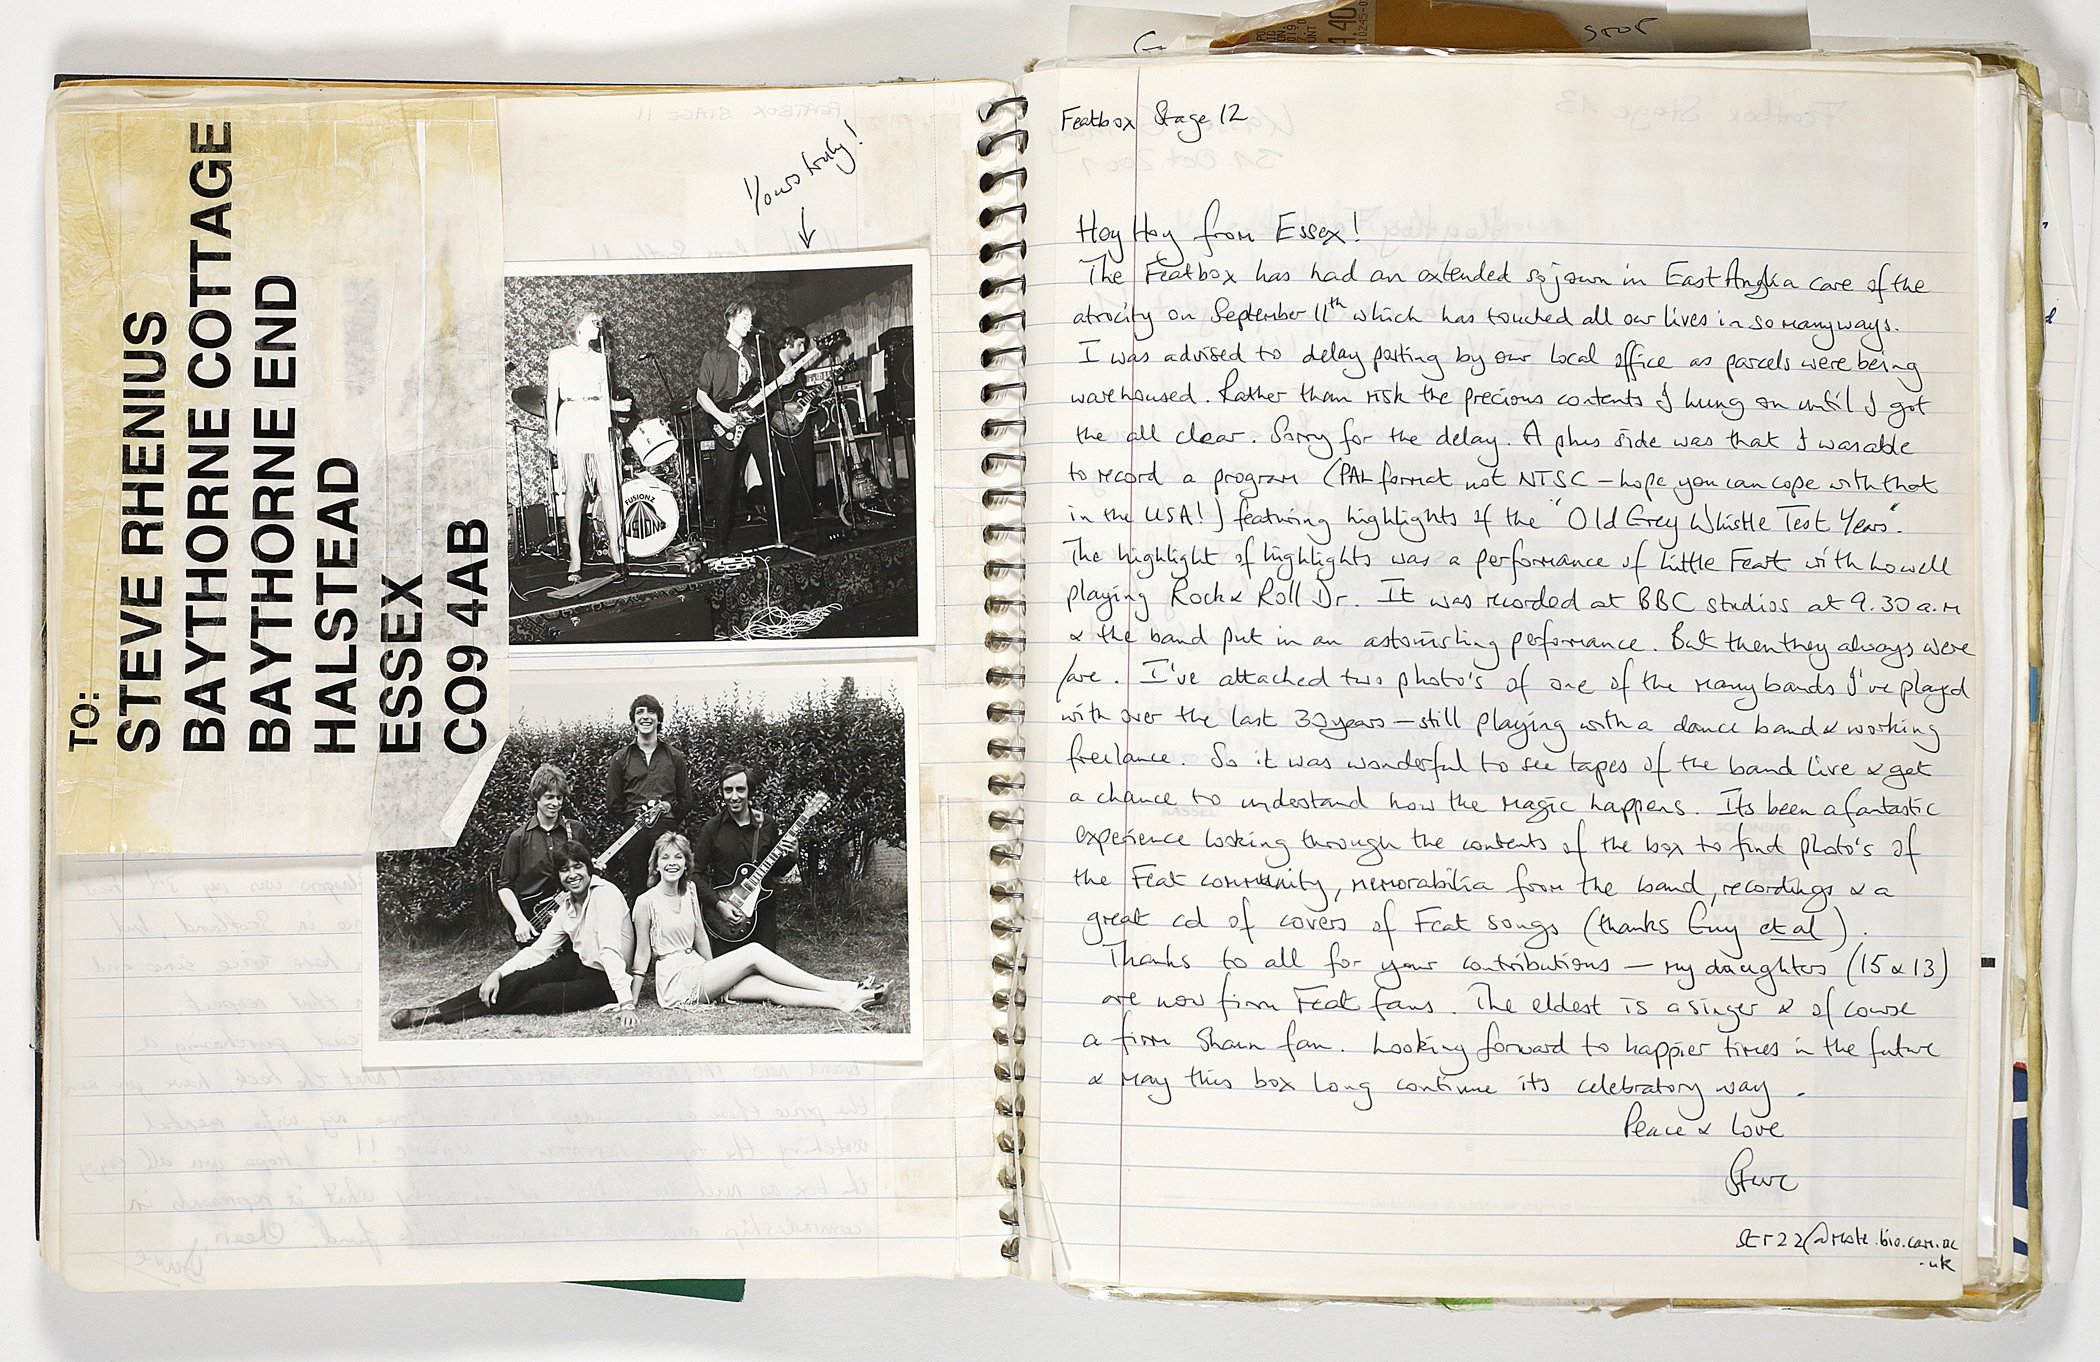 TO:
STEVE RHENIUS
BAYTHORNE COTTAGE
BAYTHORNE END
HALSTEAD
ESSEX
CO9 4AB
Yours truly!
FUSIONZ
Featbox Stage 12
Hoy Hoy from Essex!
The Featbox has had an extended sojourn in East Anglia care of the
atrocity on September 11th which has touched all our lives in so many ways.
I was advised to delay posting by our local office as parcels were being
warehoused. Rather than risk the precious contents I hung on until I got
the all clear. Sorry for the delay. A plus side was that I was able
to record a program (PAL format not NTSC – hope you can cope with that
in the USA!) featuring highlights of the "Old Grey Whistle Test Years".
The highlight of highlights was a performance of Little Feat with Lowell
playing Rock & Roll Dr. It was recorded at BBC studios at 9.30 a.m
& the band put in an astonishing performance. But then they always were
/are. I've attached two photo's of one of the many bands I've played
with over the last 30 years – still playing with a dance band & working
freelance. So it was wonderful to see tapes of the band live & get
a chance to understand how the magic happens. Its been a fantastic
experience looking through the contents of the box to find photo's of
the Feat community, memorabilia from the band, recordings & a
great cd of covers of Feat songs (thanks Guy et al).
Thanks to all for your contributions – my daughters (15 & 13)
are now firm Feat fans. The eldest is a singer & of course
a firm Shaun fan. Looking forward to happier times in the future
& may this box long continue its celebratory way.
Peace & Love
Steve
.uk